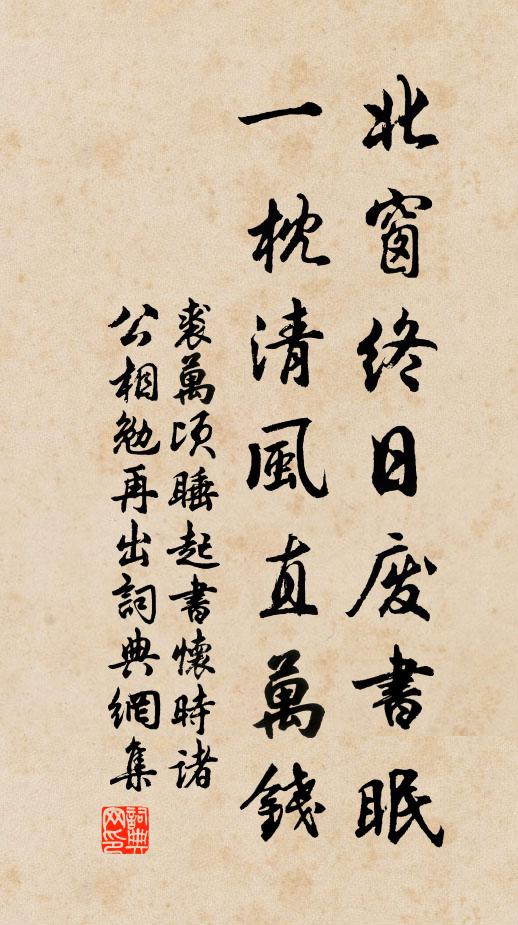 北窗終日廢書眠
一枕清風直萬錢
裘萬頃睡起書懷時諸
公相勉再出詞典網集
詞典网印